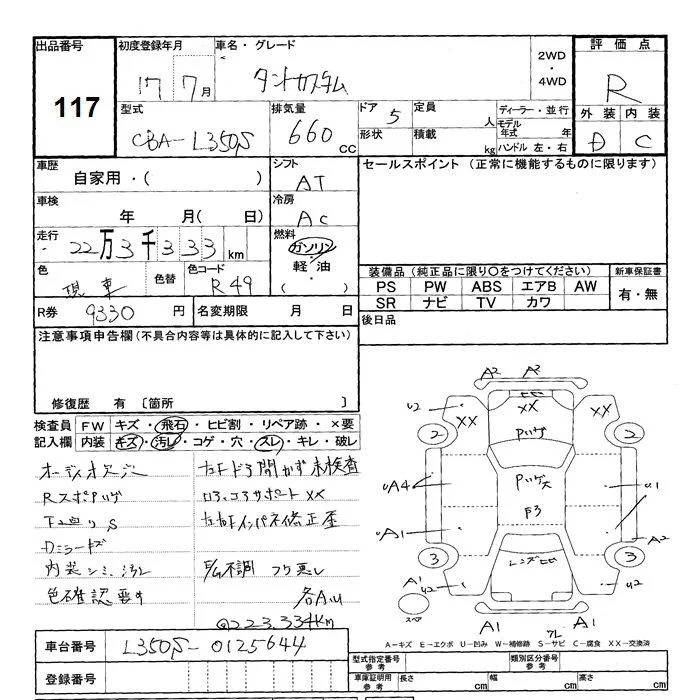 出品番号 初度登録年月 車名・グレード 評価点
117
17 7月 タントカスタム 2WD・4WD R
型式 排気量 ドア 5 定員 人 ディーラー・並行 外装 内装
CBA-L350S 660 CC 形状 積載 kg モデル年式 年 ハンドル 左・右 D C
車歴 シフト セールスポイント (正常に機能するものに限ります)
自家用・( ) AT
車検 冷房
年 月( 日) AC
走行 燃料
22万3千333km ガソリン・軽油 ( )
色 色替 色コード 装備品 (純正品に限り〇をつけてください) 新車保証書
現車 R49 PS PW ABS エアB AW 有・無
SR ナビ TV カワ
R券 9330円 名変期限 月 日 後日品
注意事項申告欄 (不具合内容等は具体的に記入して下さい)
修復歴 有 〔箇所 〕
検査員 FW キズ・飛石・ヒビ割・リペア跡・×要
記入欄 内装 キズ・汚レ・コゲ・穴・スレ・キレ・破レ
オーディオ欠品 左Fドア開かず未検査
RスポPハゲ ロア、コアサポートXX
左右Fインパネ修正歪
Dミラーキズ
内装シミ、汚レ E/G不調 フケ悪し
色確認要す 各A.U
@223,334km
車台番号 L350S-0125644
登録番号
A2 A2
U2 XX XX XX
2 Pハゲ 2
UA4 Pハゲ大 U1
A1 F3 A2
3 レンズヒビ 3
A1 U2 U2
スペア A1 フレ A1
A-キズ E-エクボ U-凹み W-補修跡 S-サビ C-腐食 XX-交換済
型式指定番号 参考 類別区分番号 参考
車庫証明用 参考 長さ cm 幅 cm 高さ cm